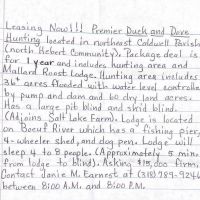 Leasing Now!!! Premier Duck and Dove
Hunting located in northeast Caldwell Parish
(north Hebert Community). Package deal is
for 1 year and includes hunting area and
Mallard Roost Lodge. Hunting area includes
36+ acres flooded with water level controlled
by pump and dam and 60 dry land acres.
Has a large pit blind and skid blind.
(Adjoins Salt Lake Farm). Lodge is located
on Boeuf River which has a fishing pier,
4-wheeler shed, and dog pen. Lodge will
sleep 4 to 8 people. (Approximately 5 min.
from lodge to blind). Asking $15,000 firm.
Contact Janie M. Earnest at (318) 789-9246
between 8:00 A.M. and 8:00 P.M.